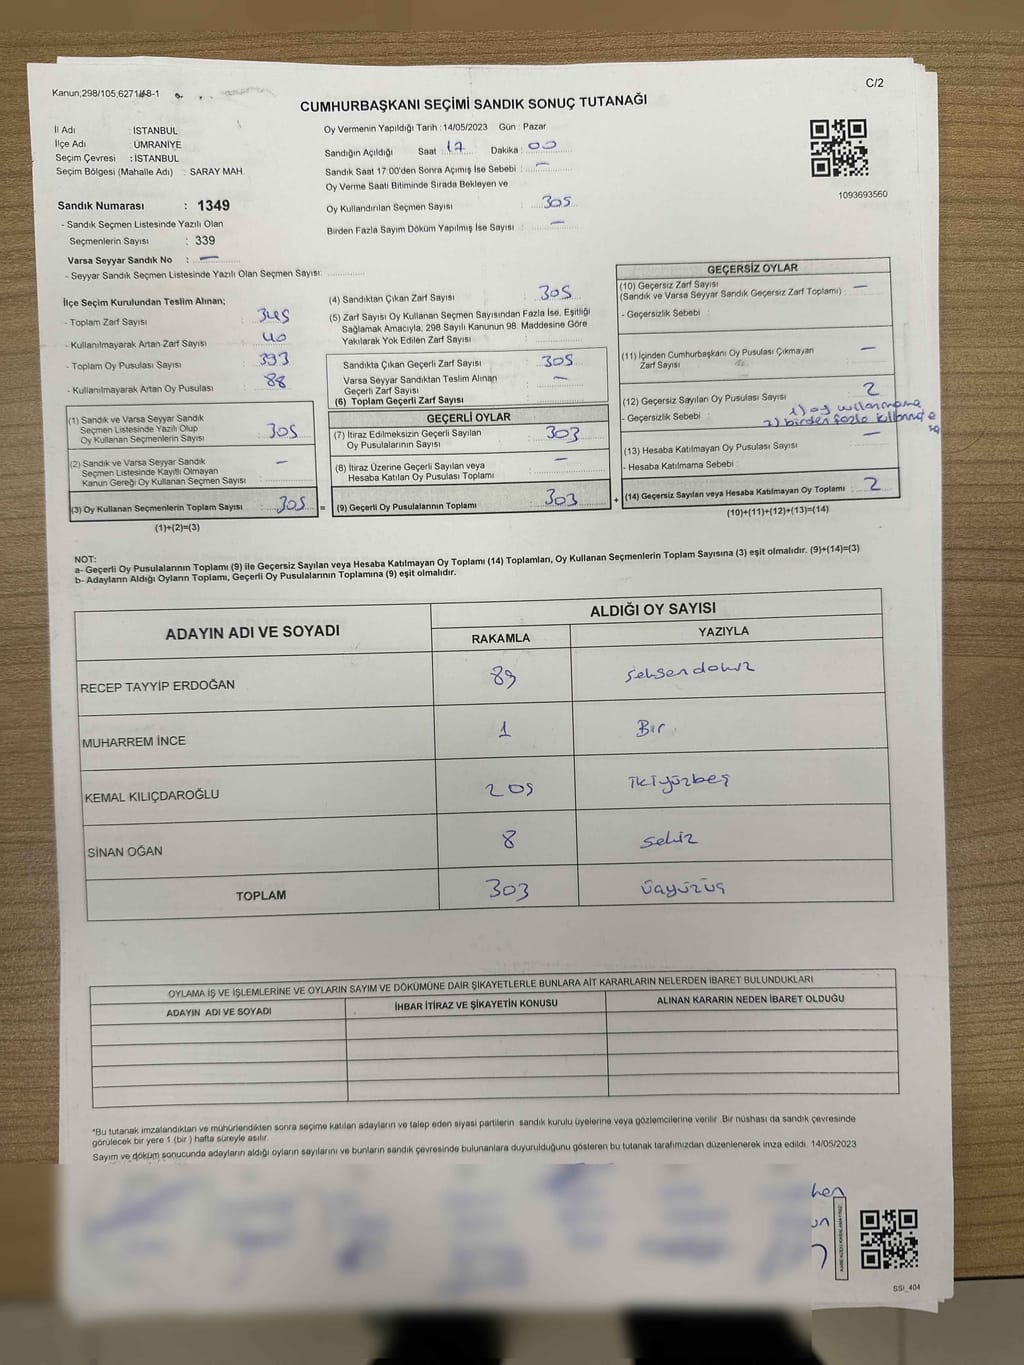 Kanun;298/105,6271/18-1
C/2
CUMHURBAŞKANI SEÇİMİ SANDIK SONUÇ TUTANAĞI
İl Adı : İSTANBUL
İlçe Adı : ÜMRANİYE
Seçim Çevresi : İSTANBUL
Seçim Bölgesi (Mahalle Adı) : SARAY MAH.
Sandık Numarası : 1349
- Sandık Seçmen Listesinde Yazılı Olan
Seçmenlerin Sayısı : 339
Varsa Seyyar Sandık No : —
- Seyyar Sandık Seçmen Listesinde Yazılı Olan Seçmen Sayısı:
Oy Vermenin Yapıldığı Tarih :14/05/2023 Gün : Pazar
Sandığın Açıldığı Saat : 17 Dakika : 00
Sandık Saat 17:00'den Sonra Açımış İse Sebebi : —
Oy Verme Saati Bitiminde Sırada Bekleyen ve
Oy Kullandırılan Seçmen Sayısı : 305
Birden Fazla Sayım Döküm Yapılmış İse Sayısı : —
1093693560
İlçe Seçim Kurulundan Teslim Alınan;
- Toplam Zarf Sayısı : 345
- Kullanılmayarak Artan Zarf Sayısı : 40
- Toplam Oy Pusulası Sayısı : 393
- Kullanılmayarak Artan Oy Pusulası : 88
(1) Sandık ve Varsa Seyyar Sandık
Seçmen Listesinde Yazılı Olup
Oy Kullanan Seçmenlerin Sayısı : 305
(2) Sandık ve Varsa Seyyar Sandık
Seçmen Listesinde Kayıtlı Olmayan
Kanun Gereği Oy Kullanan Seçmen Sayısı : —
(3) Oy Kullanan Seçmenlerin Toplam Sayısı : 305 =
(1)+(2)=(3)
(4) Sandıktan Çıkan Zarf Sayısı : 305
(5) Zarf Sayısı Oy Kullanan Seçmen Sayısından Fazla İse, Eşitliği
Sağlamak Amacıyla, 298 Sayılı Kanunun 98. Maddesine Göre
Yakılarak Yok Edilen Zarf Sayısı :
Sandıkta Çıkan Geçerli Zarf Sayısı : 305
Varsa Seyyar Sandıktan Teslim Alınan
Geçerli Zarf Sayısı : —
(6) Toplam Geçerli Zarf Sayısı :
GEÇERLİ OYLAR
(7) İtiraz Edilmeksizin Geçerli Sayılan
Oy Pusulalarının Sayısı : 303
(8) İtiraz Üzerine Geçerli Sayılan veya
Hesaba Katılan Oy Pusulası Toplamı : —
(9) Geçerli Oy Pusulalarının Toplamı : 303 +
GEÇERSİZ OYLAR
(10) Geçersiz Zarf Sayısı
(Sandık ve Varsa Seyyar Sandık Geçersiz Zarf Toplamı) : —
- Geçersizlik Sebebi :
(11) İçinden Cumhurbaşkanı Oy Pusulası Çıkmayan
Zarf Sayısı : —
(12) Geçersiz Sayılan Oy Pusulası Sayısı : 2
- Geçersizlik Sebebi : 1) oy kullanmama
2) birden fazla kullanma
(13) Hesaba Katılmayan Oy Pusulası Sayısı : —
- Hesaba Katılmama Sebebi :
(14) Geçersiz Sayılan veya Hesaba Katılmayan Oy Toplamı : 2
(10)+(11)+(12)+(13)=(14)
NOT:
a- Geçerli Oy Pusulalarının Toplamı (9) ile Geçersiz Sayılan veya Hesaba Katılmayan Oy Toplamı (14) Toplamları, Oy Kullanan Seçmenlerin Toplam Sayısına (3) eşit olmalıdır. (9)+(14)=(3)
b- Adayların Aldığı Oyların Toplamı, Geçerli Oy Pusulalarının Toplamına (9) eşit olmalıdır.
ADAYIN ADI VE SOYADI ALDIĞI OY SAYISI
RAKAMLA YAZIYLA
RECEP TAYYİP ERDOĞAN 89 seksendokuz
MUHARREM İNCE 1 Bir
KEMAL KILIÇDAROĞLU 205 ikiyüzbeş
SİNAN OĞAN 8 sekiz
TOPLAM 303 üçyüzüç
OYLAMA İŞ VE İŞLEMLERİNE VE OYLARIN SAYIM VE DÖKÜMÜNE DAİR ŞİKAYETLERLE BUNLARA AİT KARARLARIN NELERDEN İBARET BULUNDUKLARI
ADAYIN ADI VE SOYADI İHBAR İTİRAZ VE ŞİKAYETİN KONUSU ALINAN KARARIN NEDEN İBARET OLDUĞU
*Bu tutanak imzalandıktan ve mühürlendikten sonra seçime katılan adayların ve talep eden siyasi partilerin sandık kurulu üyelerine veya gözlemcilerine verilir. Bir nüshası da sandık çevresinde
görülecek bir yere 1 (bir) hafta süreyle asılır.
Sayım ve döküm sonucunda adayların aldığı oyların sayılarını ve bunların sandık çevresinde bulunanlara duyurulduğunu gösteren bu tutanak tarafımızdan düzenlenerek imza edildi. 14/05/2023
SSI_404